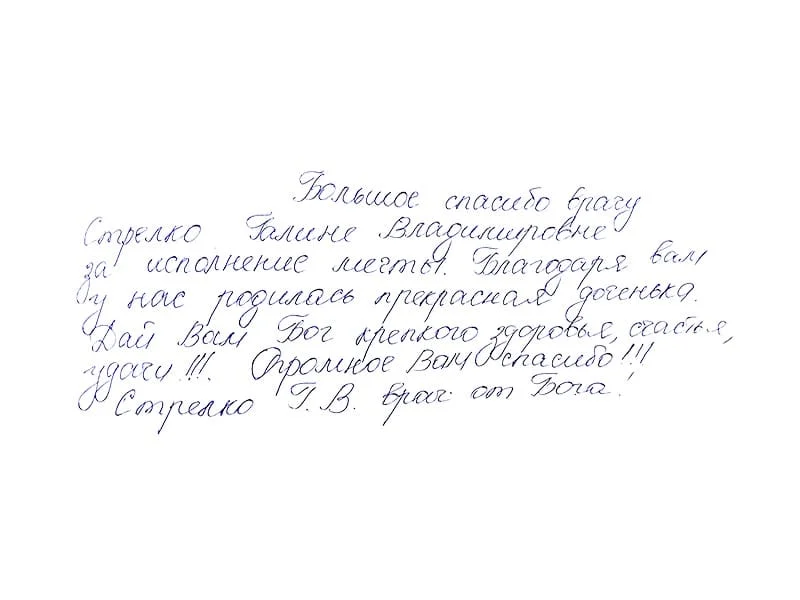 Большое спасибо врачу
Стрелко Галине Владимировне
за исполнение мечты. Благодаря вам
у нас родилась прекрасная доченька.
Дай Вам Бог крепкого здоровья, счастья,
удачи!!!. Огромное Вам спасибо!!!
Стрелко Г. В. врач от Бога!